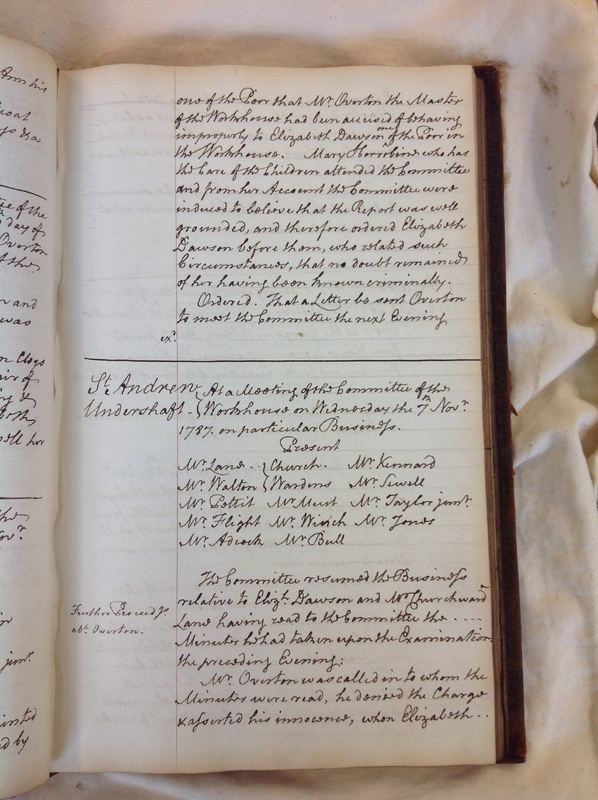 one of the Poor that Mr. Overton the Master
of the Workhouse had been accused of behaving
improperly to Elizabeth Dawson one of the Poor in
the Workhouse. Mary Horrobine who has
the Care of the Children attended the Committee
and from her Account the Committee were
induced to believe that the Report was well
grounded, and therefore ordered Elizabeth
Dawson before them, who related such
Circumstances, that no doubt remained
of her having been known criminally.
Ordered. That a Letter be sent Overton
to meet the Committee the next Evening
exd.
St. Andrew
Undershaft
At a Meeting of the Committee of the
Workhouse on Wednesday the 7th Novr.
1787. on particular Business.
Present
Mr. Lane - - Church. Mr. Kennard
Mr. Walton Wardens Mr. Sewell
Mr. Pettit Mr. Must Mr. Taylor junr.
Mr. Flight Mr. Winch Mr. Jones
Mr. Adcock Mr. Bull
The Committee resumed the Business
relative to Elizt. Dawson and Mr. Churchwardn
Lane having read to the Committee the - - - -
Minutes he had taken upon the Examination
the preceding Evening:
Further Proceedgs.
abt. Overton.
Mr. Overton was called in to whom the
Minutes were read, he denied the Charge
& asserted his innocence, when Elizabeth - -
Arm his
ce of the
day of
Overton
of the
n and
was
n Clogs
air of
the
Novr.
junr.
ed by